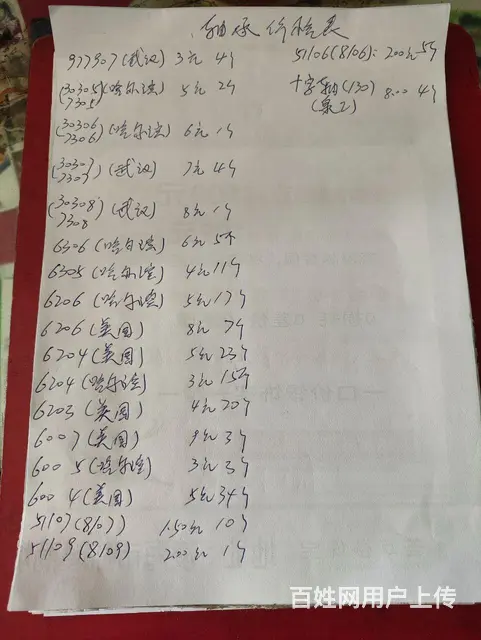 轴承价格表
977907(武汉) 3元 4个
(30305
7305)(哈尔滨) 5元 2个
(30306
7306)(哈尔滨) 6元 1个
(30307
7307)(武汉) 7元 4个
(30308
7308)(武汉) 8元 1个
6306(哈尔滨) 6元 5个
6305(哈尔滨) 4元 11个
6206(哈尔滨) 5元 17个
6206(美国) 8元 7个
6204(美国) 5元 23个
6204(哈尔滨) 3元 15个
6203(美国) 4元 20个
6007(美国) 9元 3个
6005(哈尔滨) 3元 3个
6004(美国) 5元 34个
51107(8107) 1.50元 10个
51109(8109) 2.00元 1个
51106(8106): 2.00元 5个
十字轴(130) 8.00 4个
百姓网用户上传